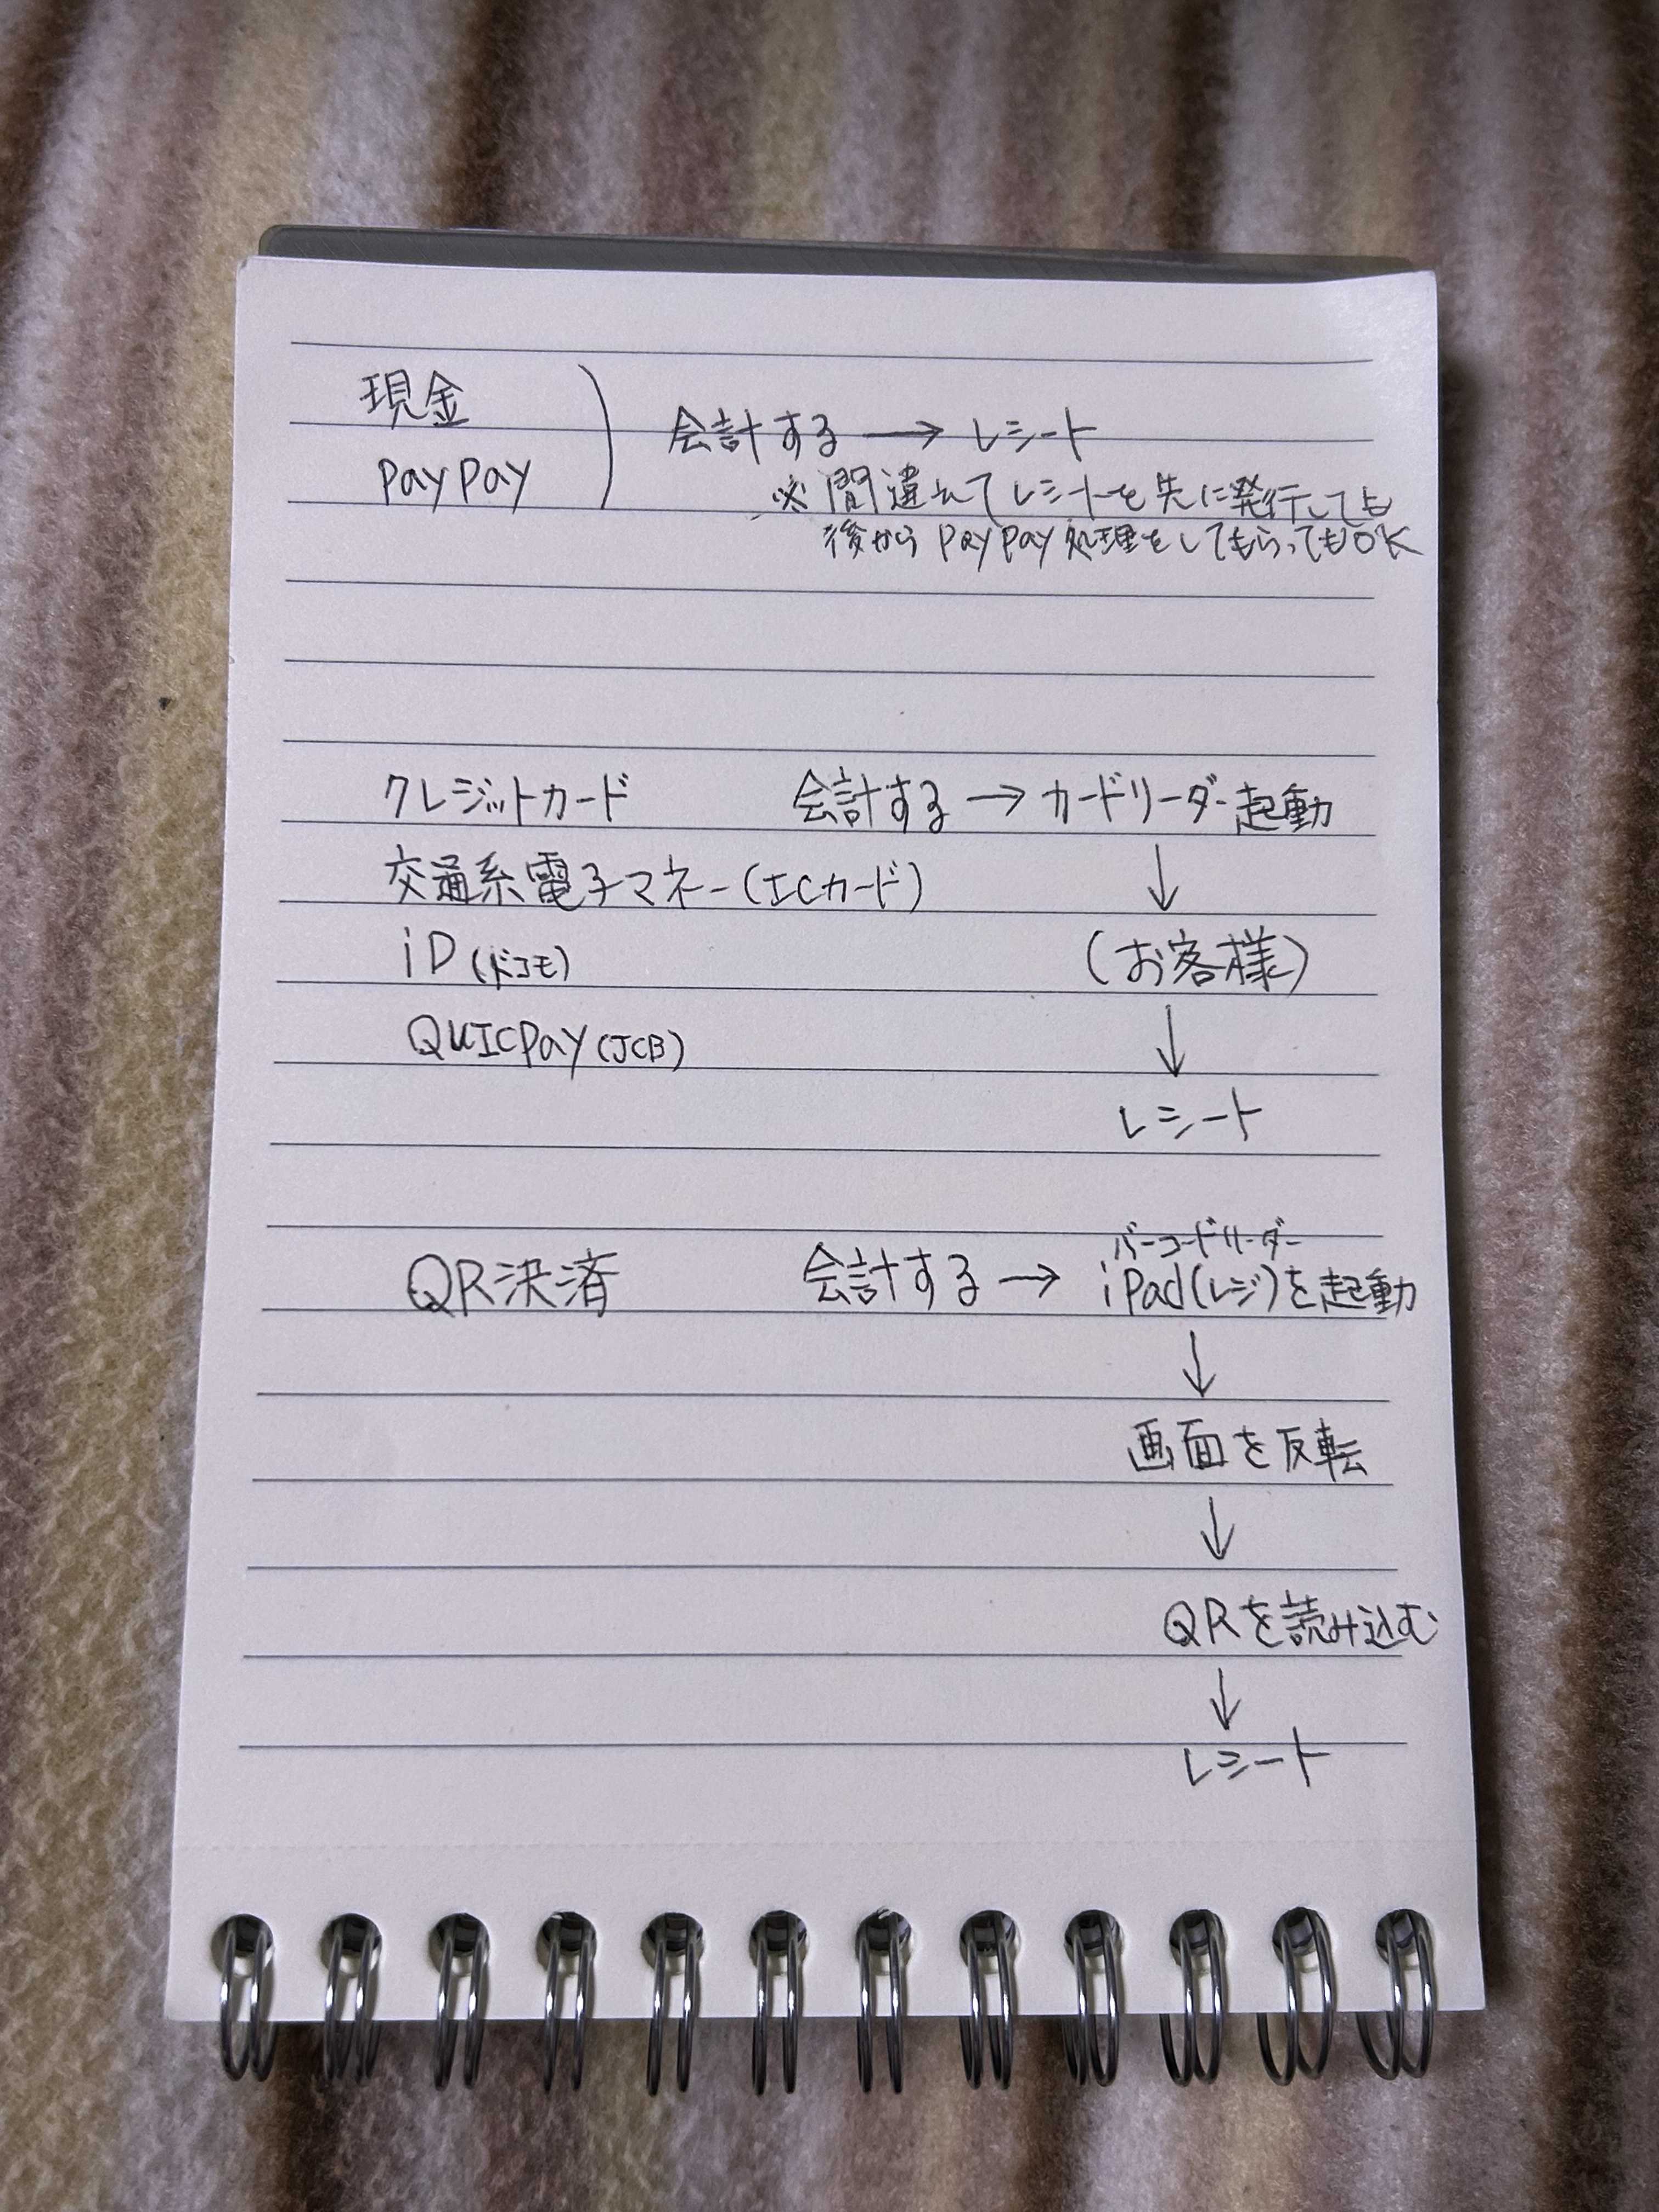 現金
PayPay
会計する → レシート
※ 間違えてレシートを先に発行しても
後から PayPay 処理をしてもらってもOK
クレジットカード 会計する → カードリーダー起動
交通系電子マネー(ICカード) ↓
iD(ドコモ) (お客様)
QUICPay(JCB) ↓
レシート
バーコードリーダー
QR決済 会計する → iPad(レジ)を起動
↓
画面を反転
↓
QRを読み込む
↓
レシート